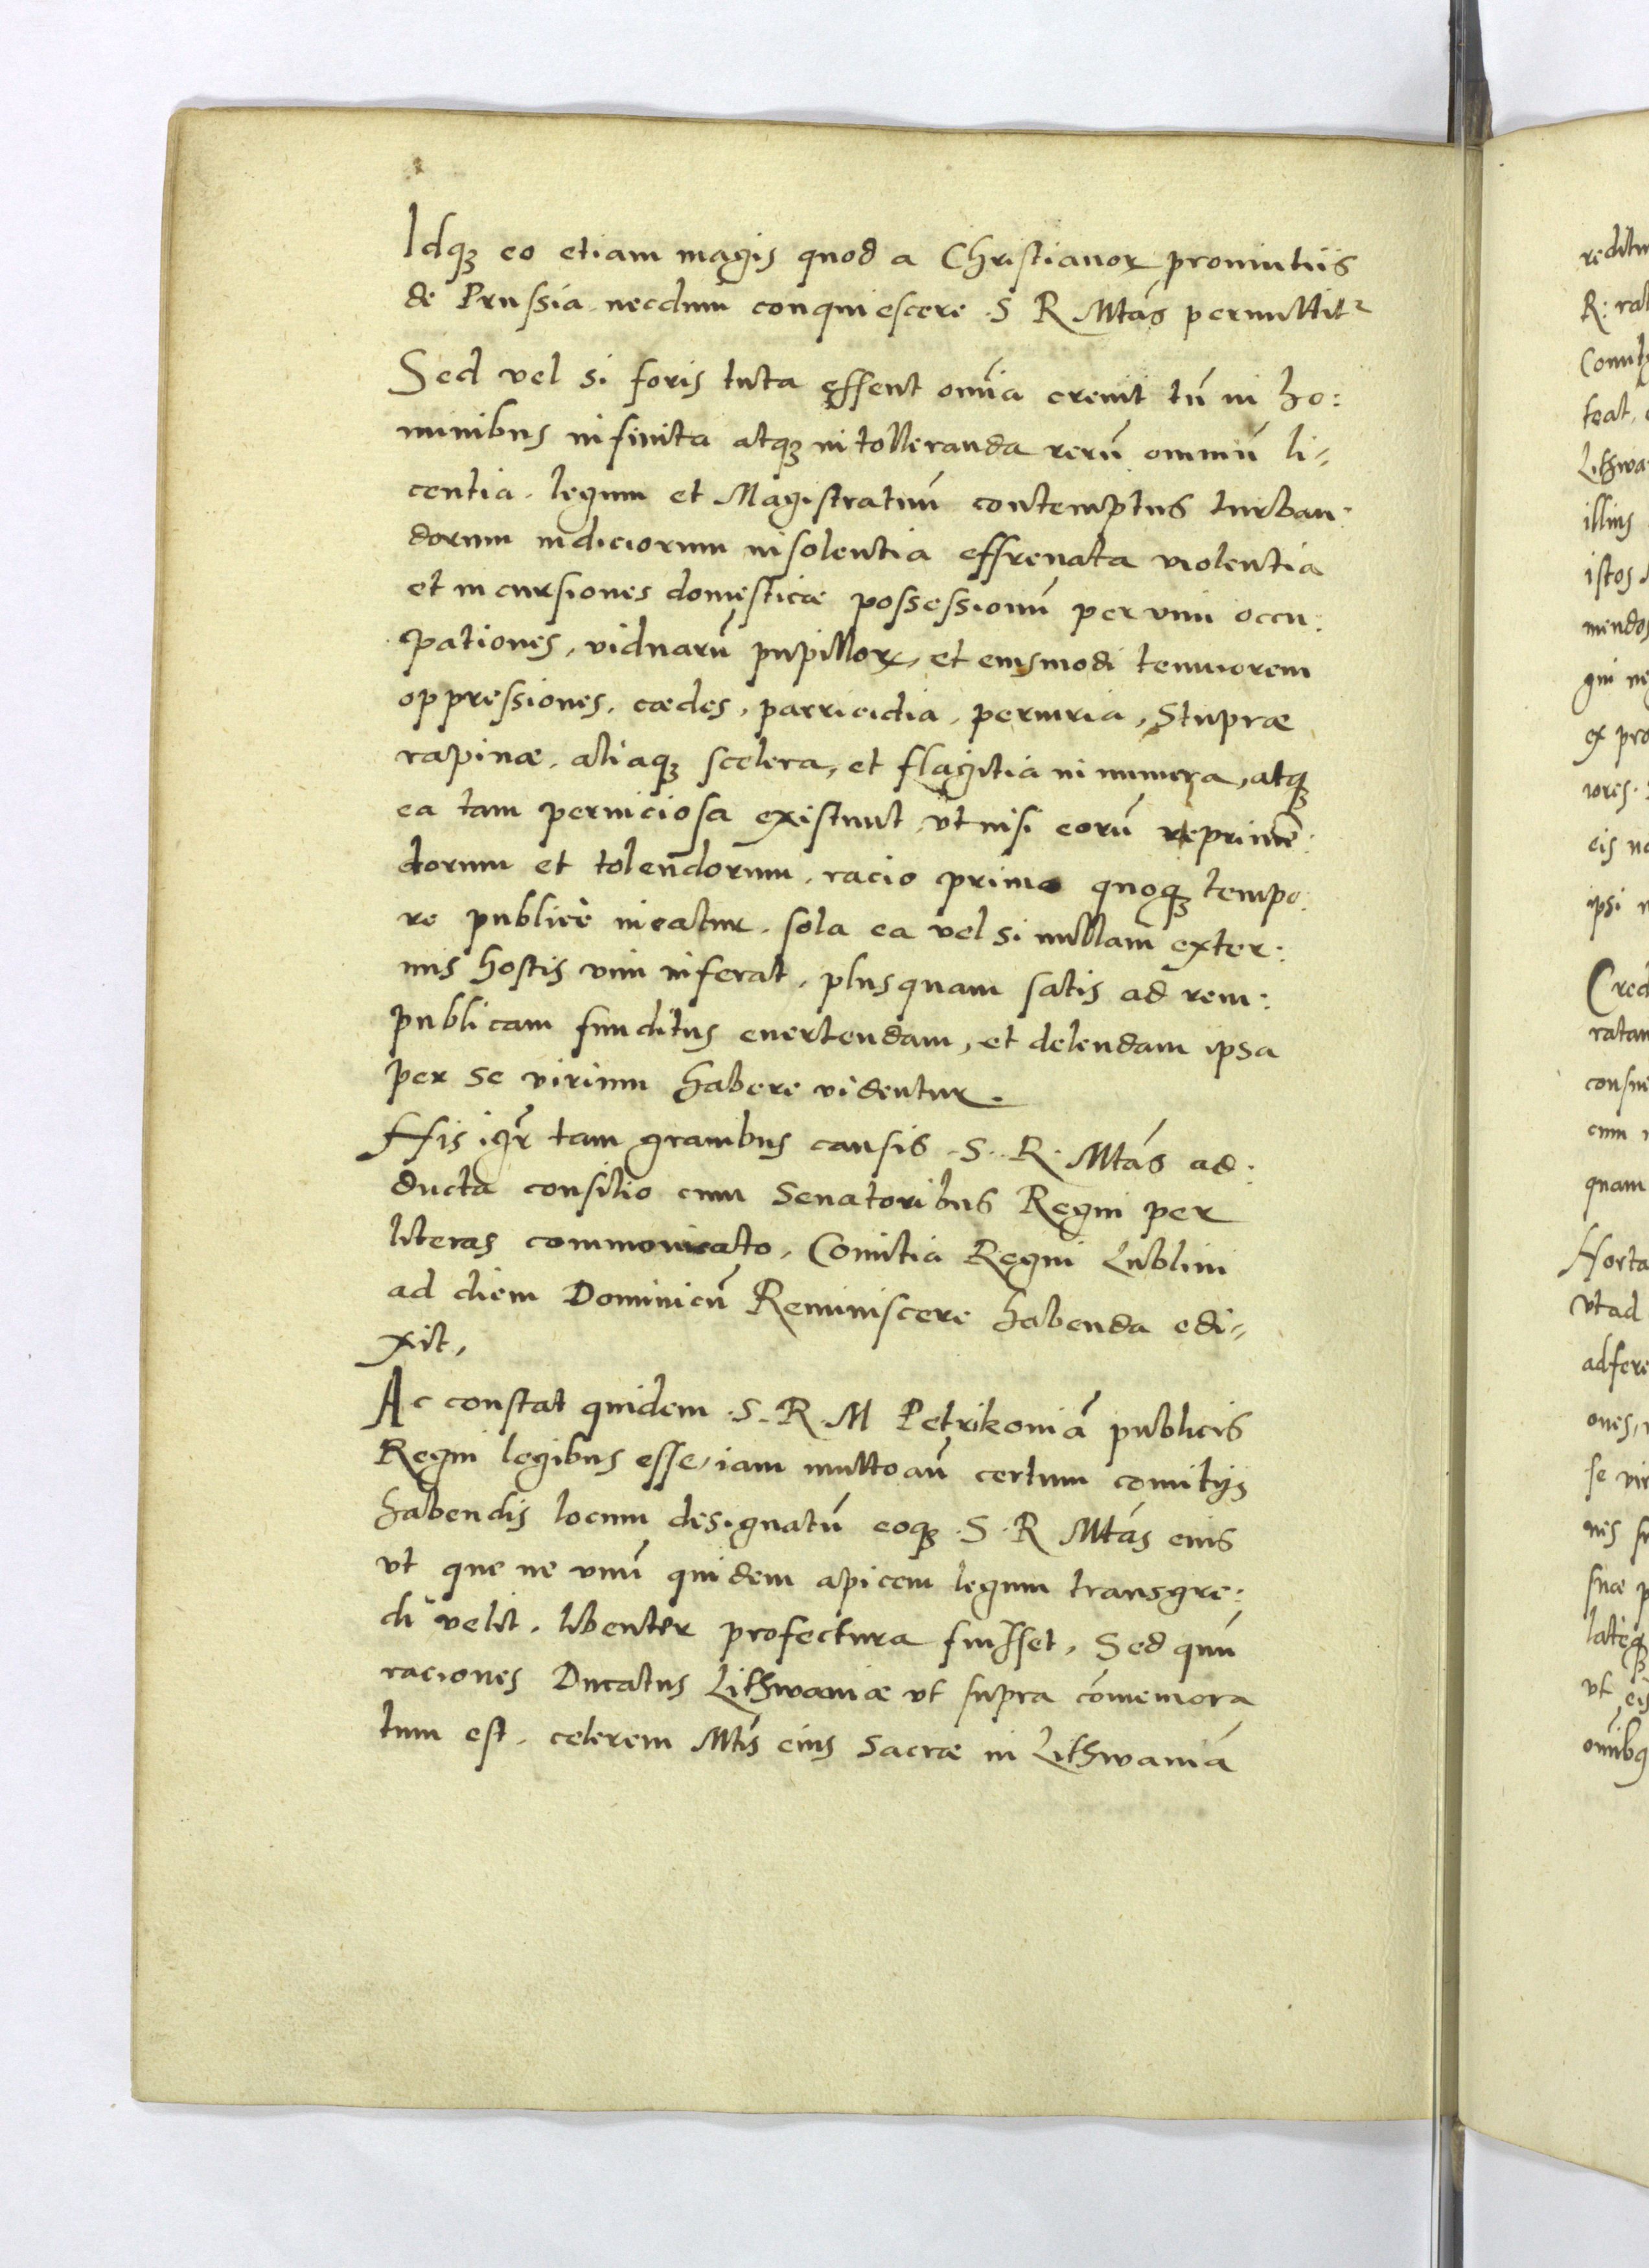 Idqꝫ eo etiam magis quod a Christianoꝝ prouintiis
de Prussia necdum conquiescere S R Mtás permittitᷣ
Sed vel si foris tuta essent om̃ia creuit tñ in ho:
minibus infinita atqꝫ intolleranda rerũ omniũ li=
centia. legum et Magistratuũ contemptus turban:
dorum iudiciorum insolentia effrenata violentia
et incursiones domesticæ possessionũ per vim occu:
pationes, viduarũ pupilloꝝ, et eiusmodi tenuiorem
oppressiones, cædes, parricidia, periuria, Stupræ
rapinæ, aliaqꝫ scelera, et flagitia innumera, atqꝫ
ea tam perniciosa existunt, vt nisi eorũ reprimẽ:
dorum et tolendorum, racio primo quoqꝫ tempo:
re publicè ineatur. sola ea vel si nullam exter:
nus hostis vim inferat, plusquam satis ad rem:
publicam funditus euertendam, et delendam ipsa
per se virium habere videntur.
His igr̃ tam grauibus causis S. R. Mtás ad:
ducta consilio cum Senatoribus Regni per
literas commonicato, Comitia Regni Lublini
ad diem Dominicũ Reminiscere habenda edi=
xit,
Ac constat quidem S. R. M Petrikouiã publicis
Regni legibus esse, iam multo aũ certum comitijs
habendis locum designatũ eoqꝫ S. R Mtás eius
vt que ne vnũ quidem apicem legum transgre:
di velit, libenter profectura fuisset, Sed quũ
raciones Ducatus Lithwaniæ vt supra cõmemora
tum est, celerem Mtis eius Sacræ in Lithwaniã
reditu
R: ra
Comit
feat,
Lithwa
illius
istos
mendos
gni ne
ex pro
iores.
eis
ipsi
Cred
ratam
consue
cum
quam
Horta
vt ad
adfere
ones,
se vir
nes
suæ p
lateqꝫ
vt eis
om̃ibꝫ